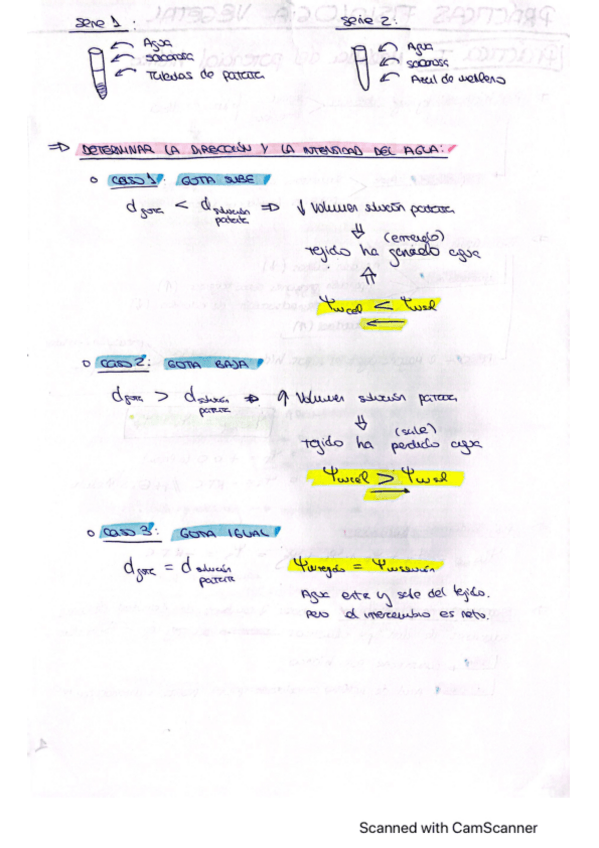 Serie 1 :
Agua
sacarosa
Tuberas de patata
Serie 2 :
Agua
sacarosa
Azul de metileno
⇒ DETERMINAR LA DIRECCIÓN Y LA INTENSIDAD DEL AGUA:
○ CASO 1 : GOTA SUBE
d gota < d solución patata ⇒ ↓ Volumen solución patata
⇓ (entrado)
tejido ha ganado agua
⇑
Ψwcel < Ψwsol
←
○ CASO 2 : GOTA BAJA
d gota > d solución patata ⇒ ↑ Volumen solución patata
⇓ (sale)
tejido ha perdido agua
Ψwcel > Ψwsol
→
○ CASO 3 : GOTA IGUAL
d gota = d solución patata Ψwtejido = Ψwsolución
Agua entra y sale del tejido.
Pero el intercambio es neto.
Scanned with CamScanner